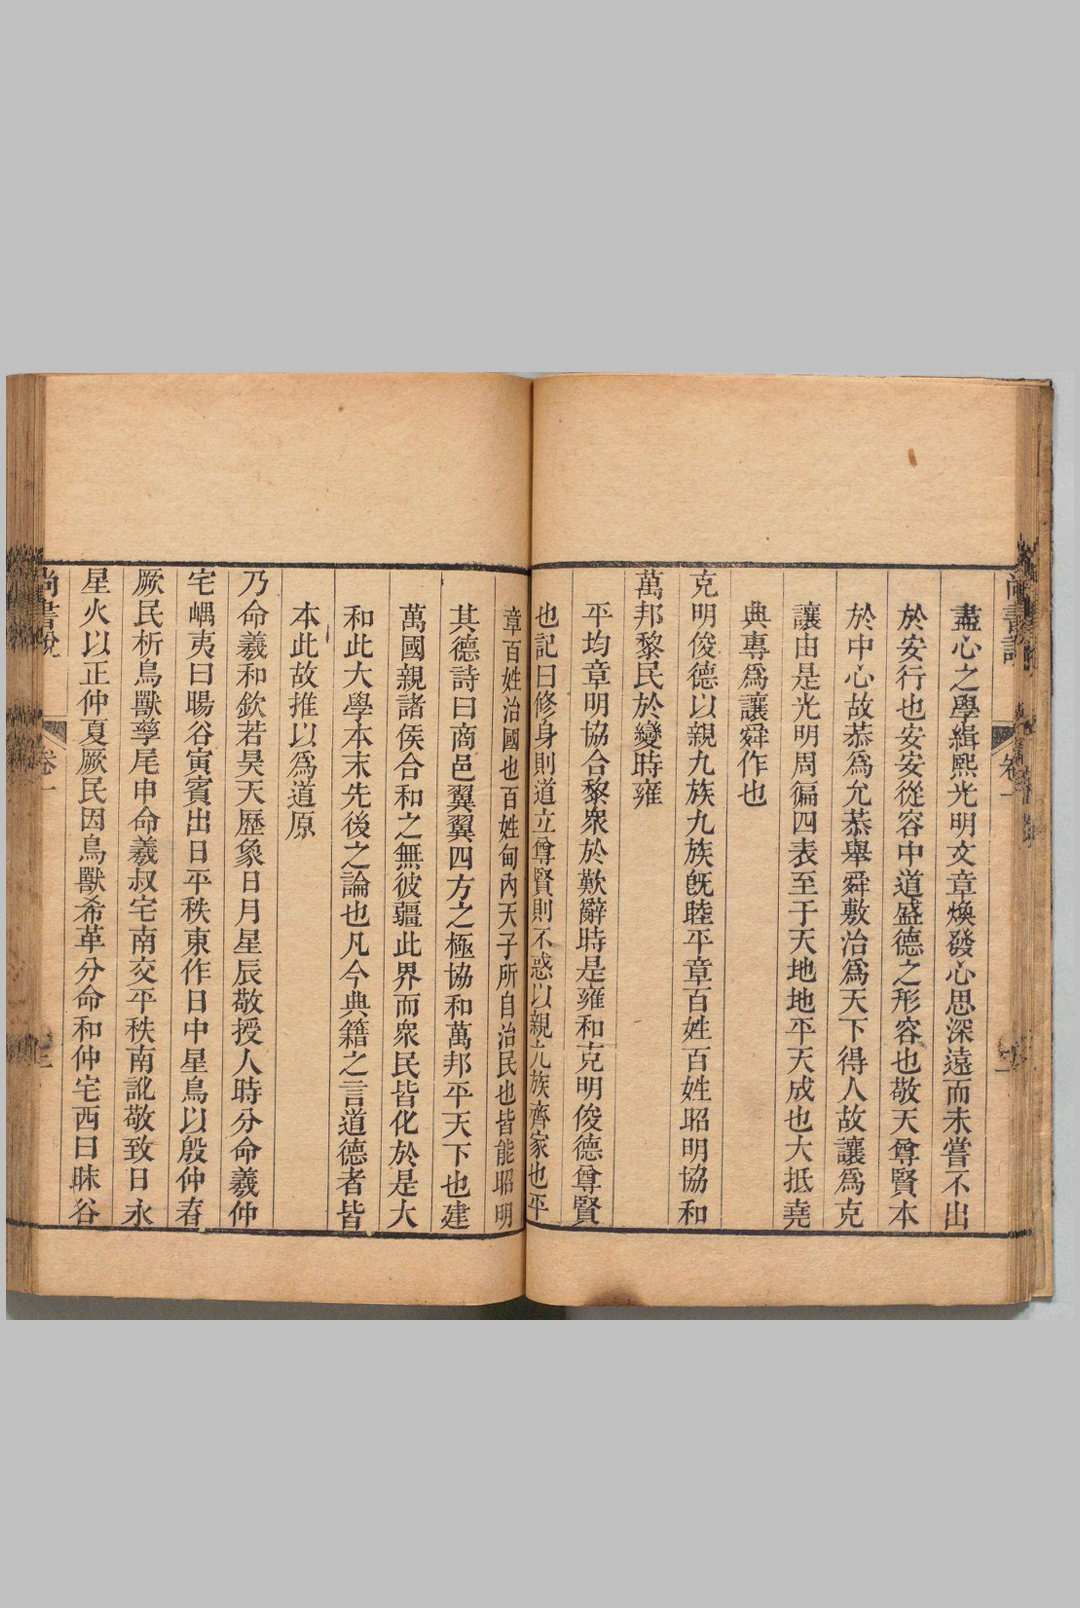 盡心之學緝熙光明文章煥發心思深遠而未嘗不出
於安行也安安從容中道盛德之形容也敬天尊賢本
於中心故恭爲允恭舉舜敷治爲天下得人故讓爲克
讓由是光明周徧四表至于天地地平天成也大抵堯
典專爲讓舜作也
克明俊德以親九族九族旣睦平章百姓百姓昭明協和
萬邦黎民於變時雍
平均章明協合黎衆於歎辭時是雍和克明俊德尊賢
也記曰修身則道立尊賢則不惑以親九族齊家也平
章百姓治國也百姓甸內天子所自治民也皆能昭明
其德詩曰商邑翼翼四方之極協和萬邦平天下也建
萬國親諸侯合和之無彼疆此界而衆民皆化於是大
和此大學本末先後之論也凡今典籍之言道德者皆
本此故推以爲道原
乃命羲和欽若昊天歷象日月星辰敬授人時分命羲仲
宅嵎夷曰暘谷寅賓出日平秩東作日中星鳥以殷仲春
厥民析鳥獸孳尾申命羲叔宅南交平秩南訛敬致日永
星火以正仲夏厥民因鳥獸希革分命和仲宅西曰昧谷
尚書說 卷一 三